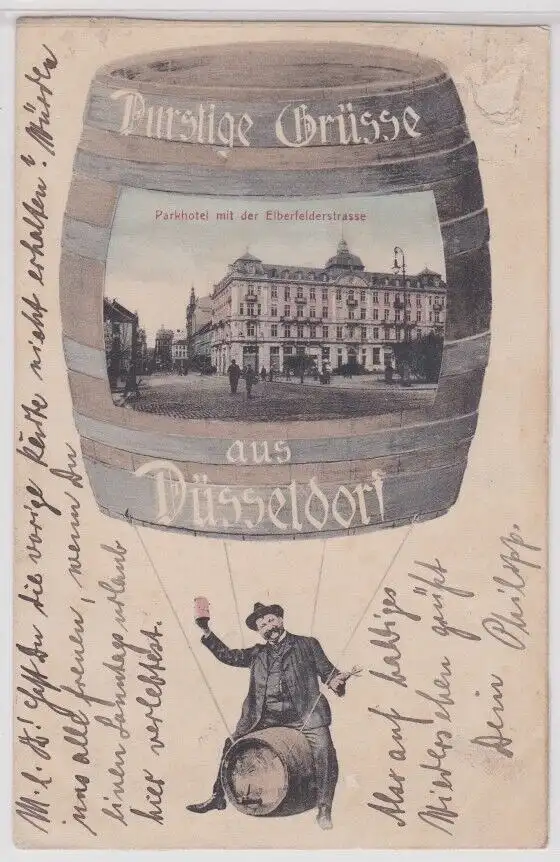 Durstige Grüsse
Parkhotel mit der Elberfelderstrasse
aus
Düsseldorf
M. l. Hast Du die vorige Karte nicht erhalten? Würden
uns alle freuen, wenn Du
einen Sonntagsurlaub
hier verlebtest.
Also auf baldiges
Wiedersehen grüßt
Dein Philipp.